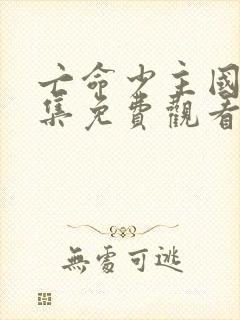 亡命少主國
集免費觀看
無處可逃